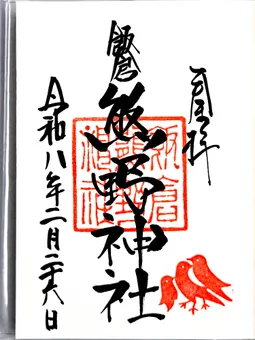 奉拝
飯倉
熊野神社
令和八年二月二十六日
飯倉熊野神社